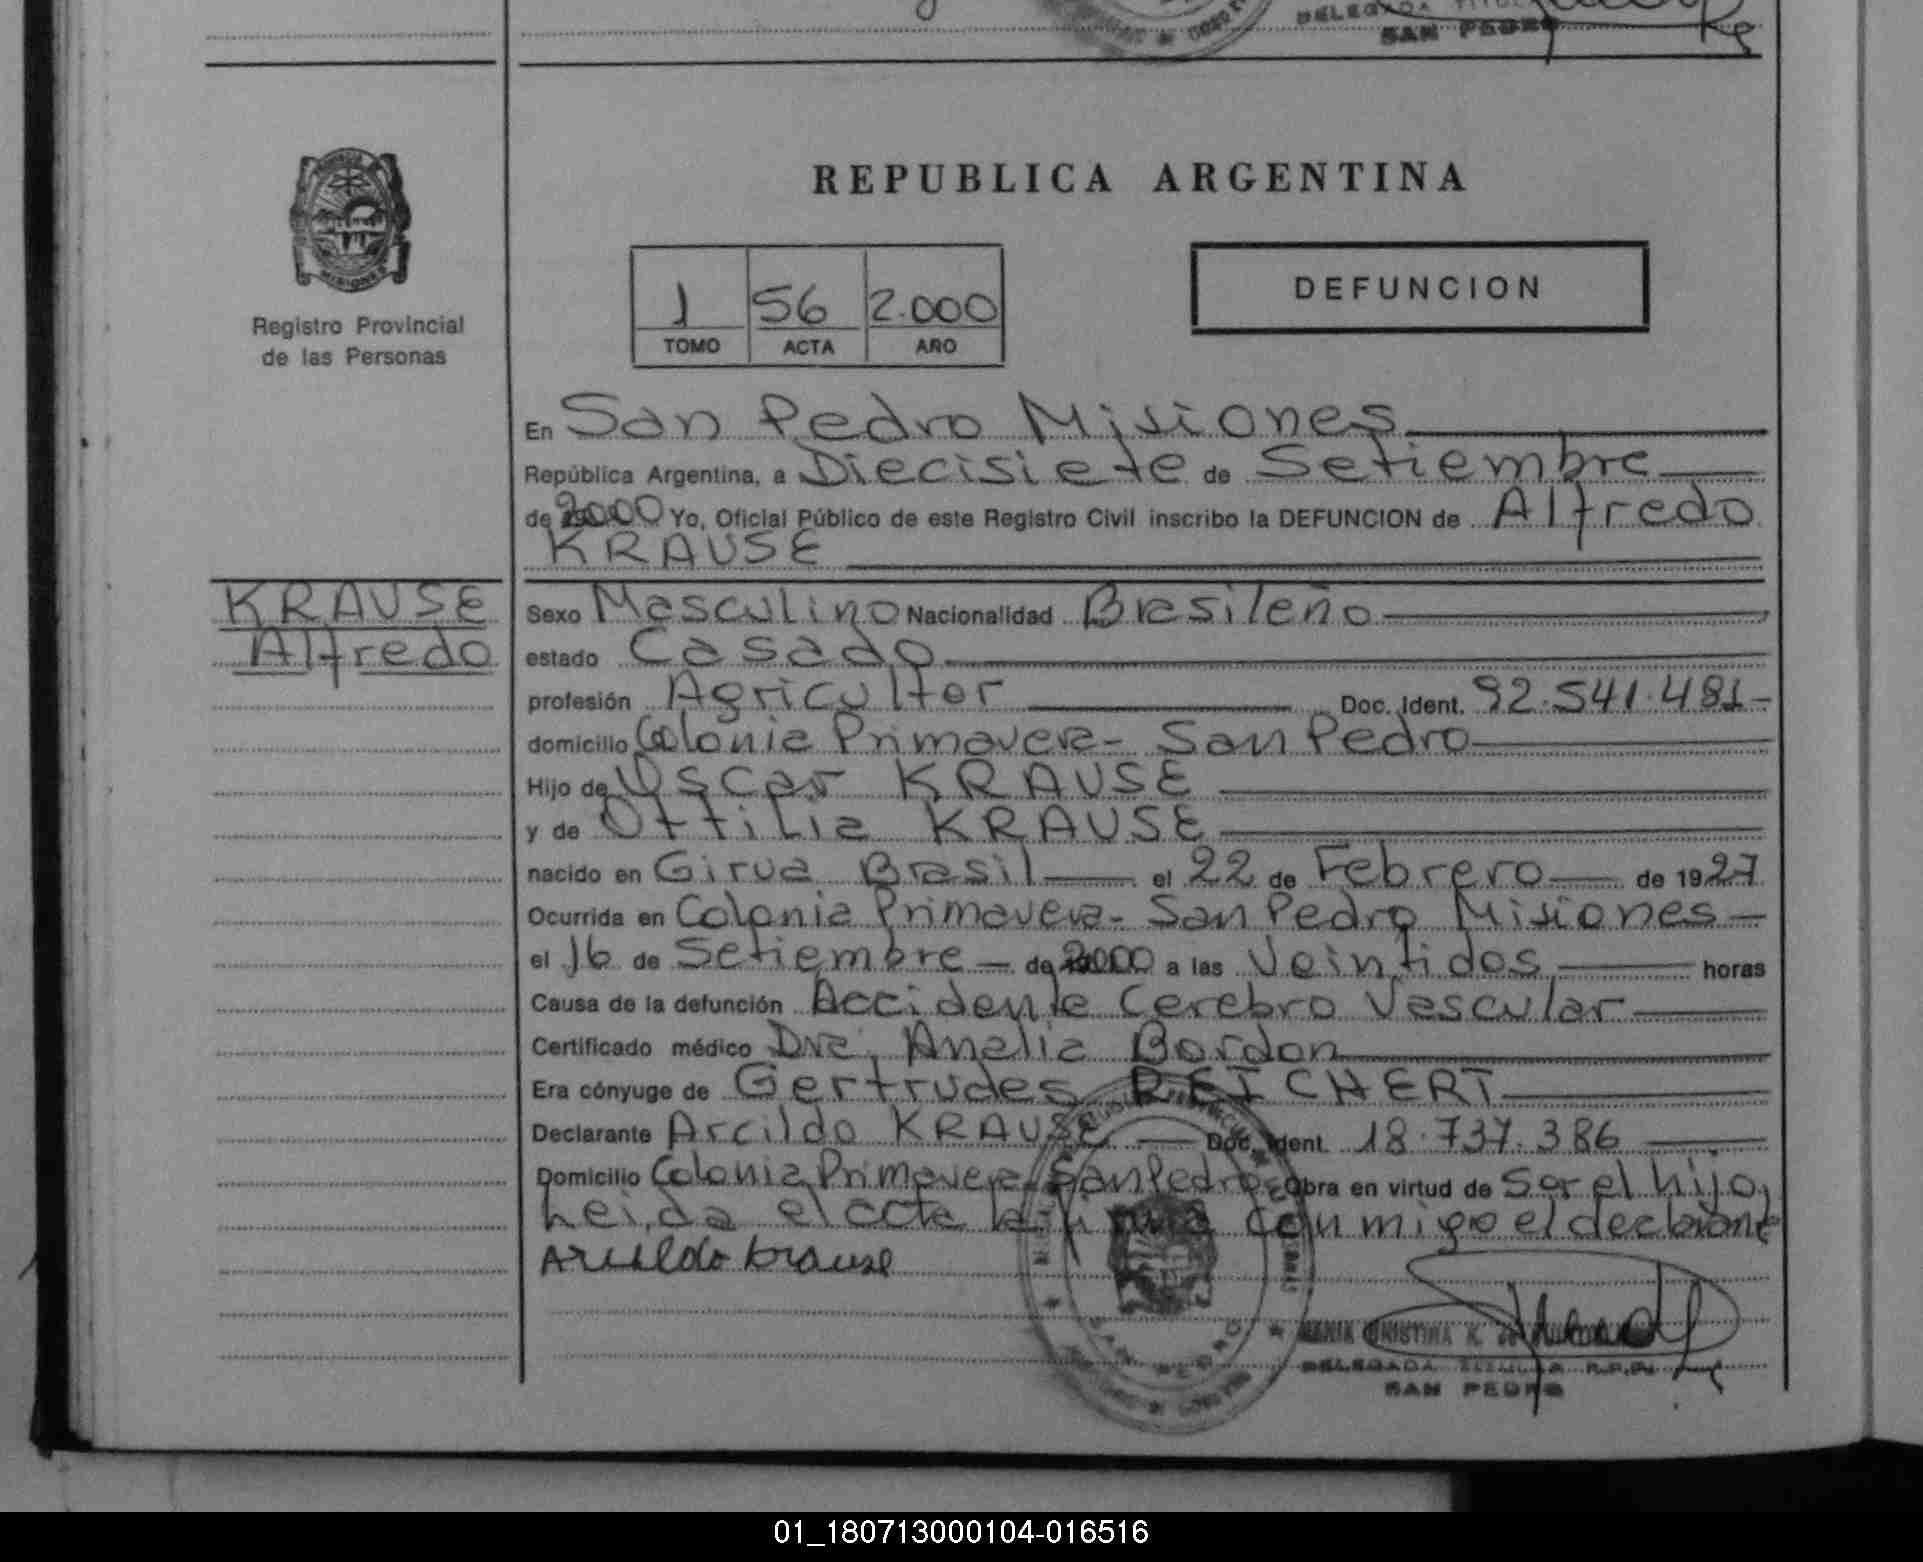 DELEGADA TITULAR
SAN PEDRO
MISIONES
Registro Provincial
de las Personas
REPUBLICA ARGENTINA
1 56 2.000
TOMO ACTA AÑO
DEFUNCION
En San Pedro Misiones
República Argentina, a Diecisiete de Setiembre
de 2000 Yo, Oficial Público de este Registro Civil inscribo la DEFUNCION de Alfredo
KRAUSE
KRAUSE
Alfredo
Sexo Masculino Nacionalidad Brasileño
estado Casado
profesión Agricultor Doc. Ident. 92.541.481-
domicilio Colonia Primavera- San Pedro
Hijo de Oscar KRAUSE
y de Ottilia KRAUSE
nacido en Girua Brasil el 22 de Febrero de 1927
Ocurrida en Colonia Primavera- San Pedro Misiones
el 16 de Setiembre de 2000 a las Veintidos horas
Causa de la defunción Accidente Cerebro Vascular
Certificado médico Dra. Analia Bordon
Era cónyuge de Gertrudes REICHERT
Declarante Arcildo KRAUSE Doc. Ident. 18.737.386
Domicilio Colonia Primavera San Pedro Obra en virtud de Ser el hijo,
Leida el acta la firma conmigo el declarante
Arcildo Krause
SAN PEDRO
MARIA CRISTINA K. de
DELEGADA TITULAR R.P.P.
SAN PEDRO
01_180713000104-016516